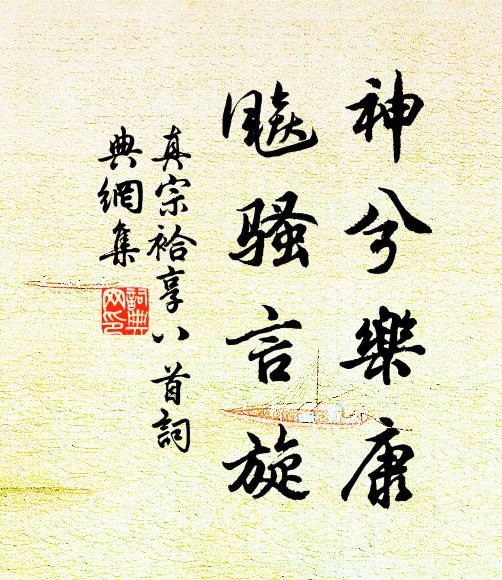 神兮樂康
飈騷言旋
真宗祫享八首詞
典網集
詞典
网印